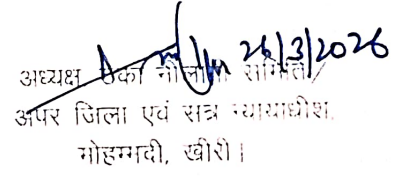 26/3/2026
अध्यक्ष ठेका नीलामी समिति/
अपर जिला एवं सत्र न्यायाधीश,
मोहम्मदी, खीरी।